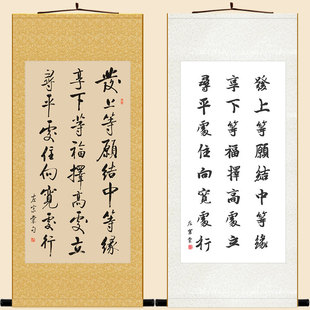 發上等願結中等緣
享下等福擇高處立
尋平處住向寬處行
左宗棠句
發上等願結中等緣
享下等福擇高處立
尋平處住向寬處行
左宗棠